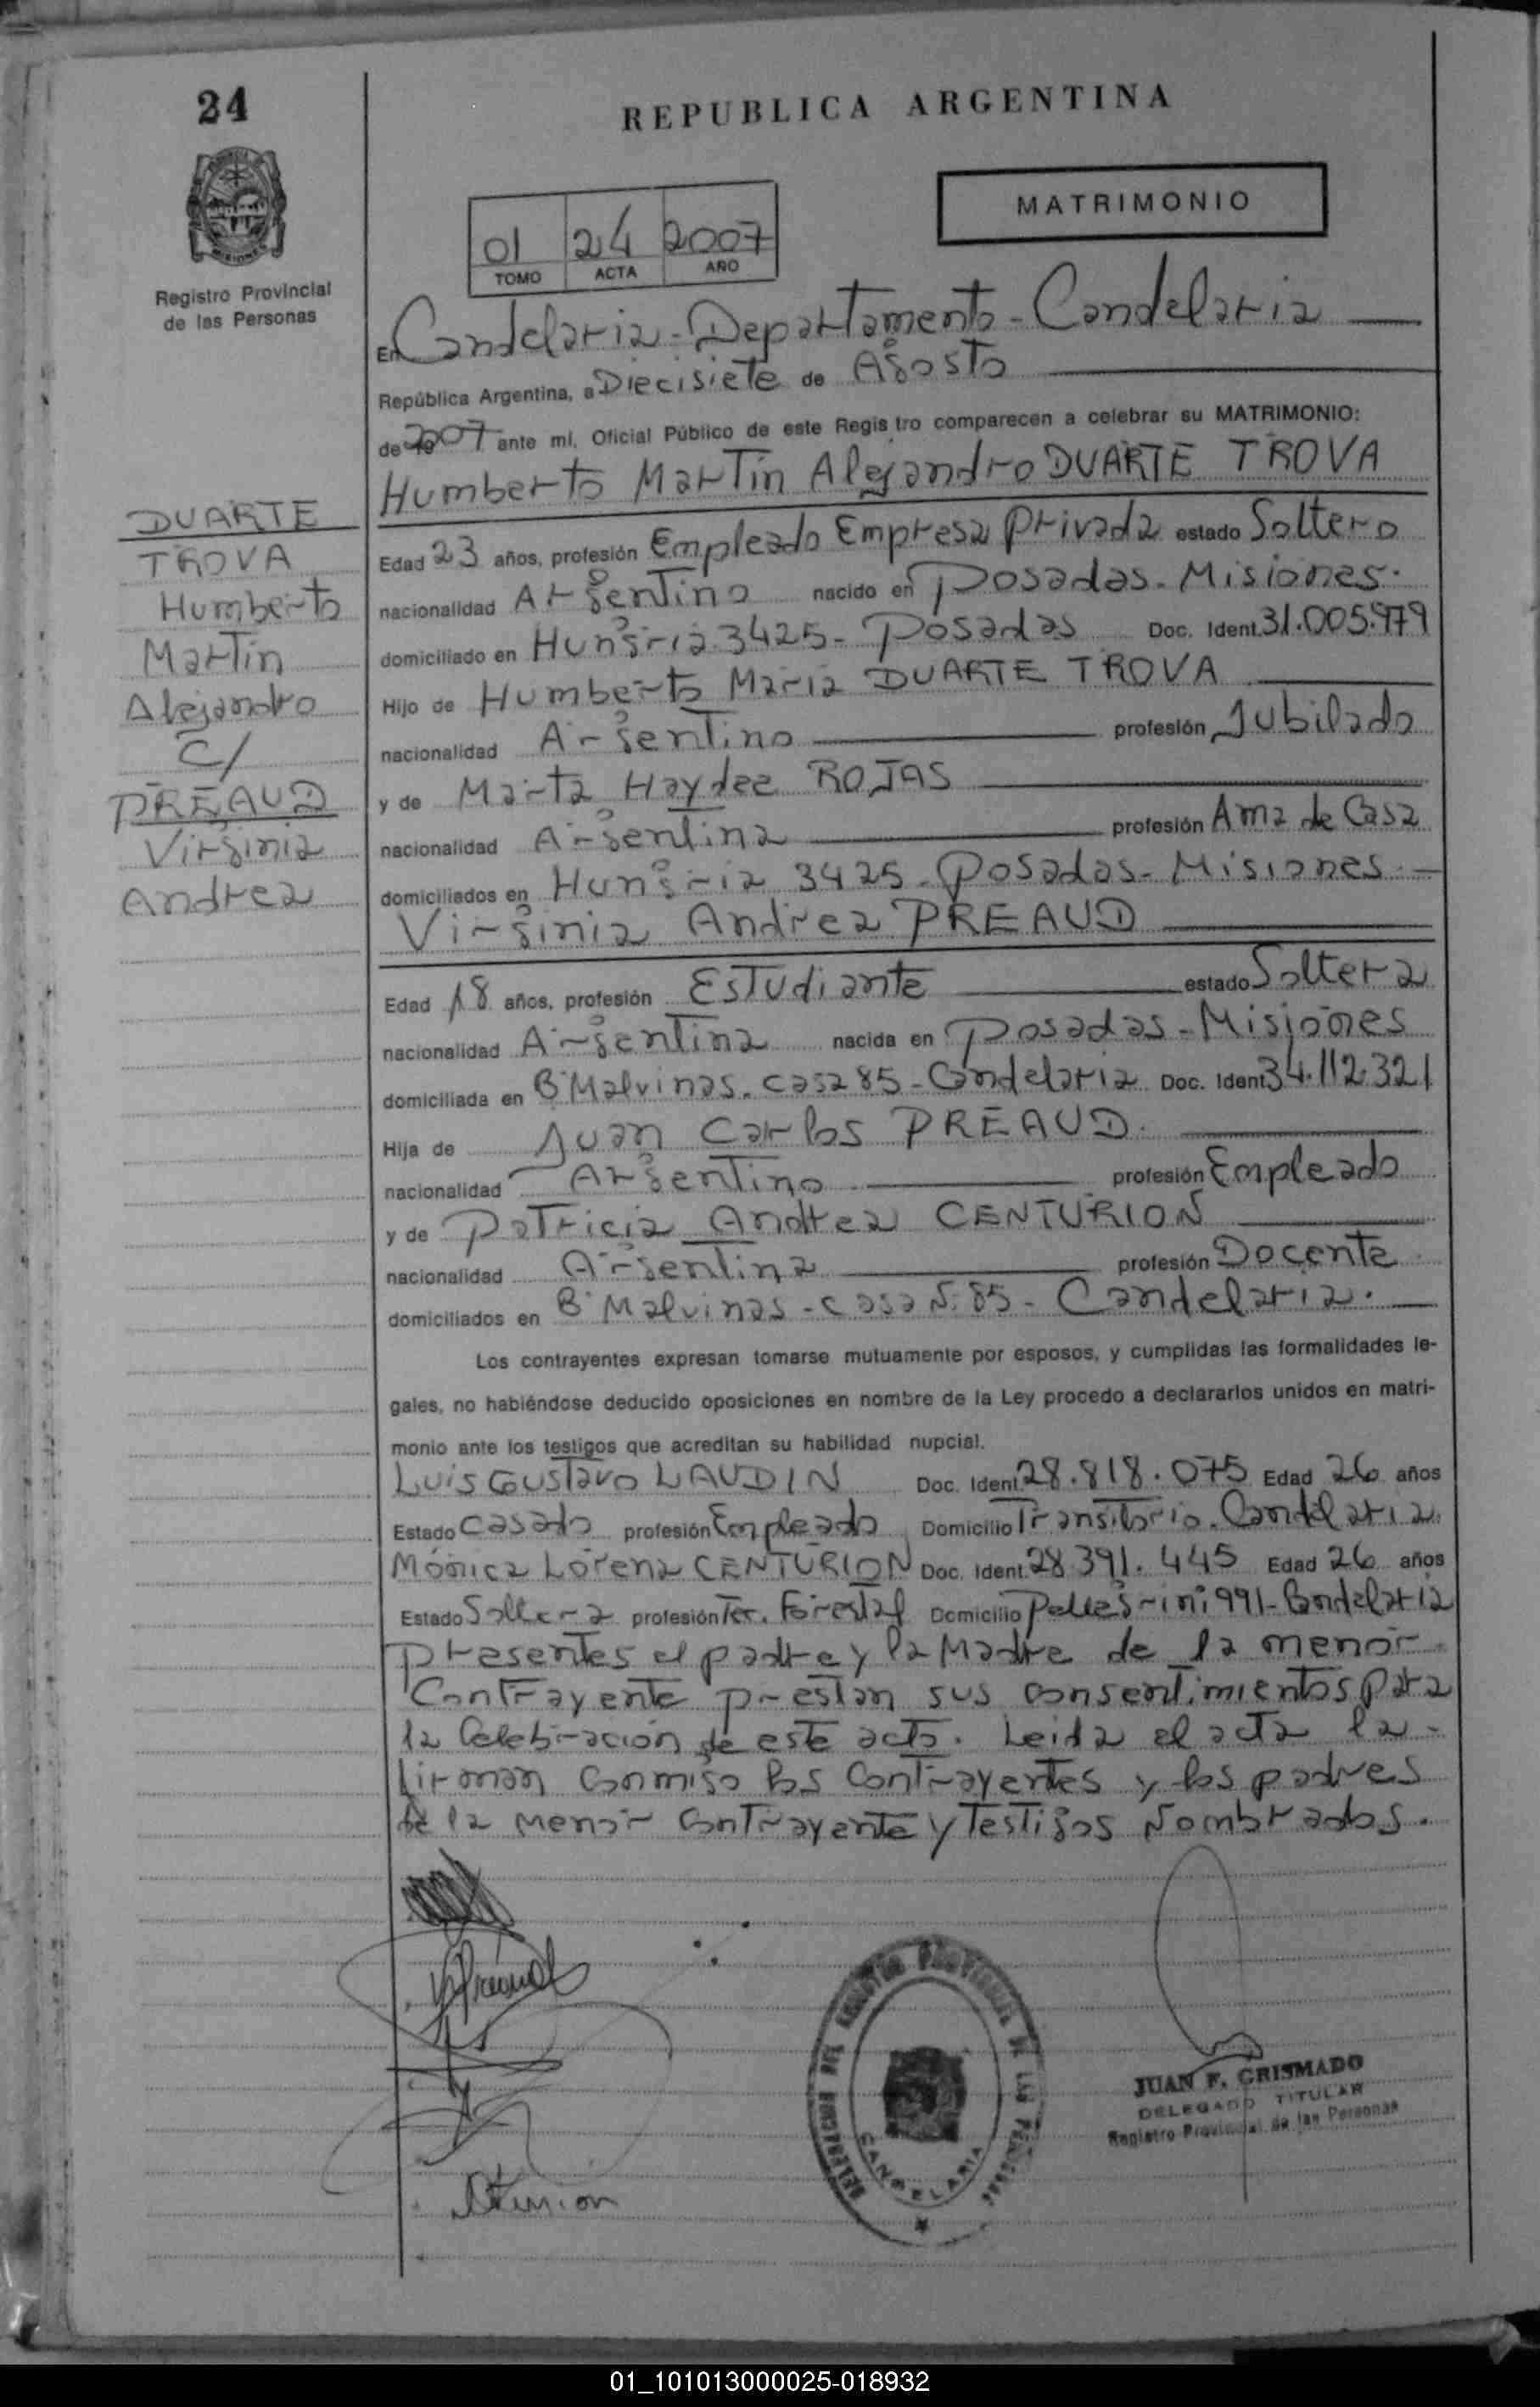 24
REPUBLICA ARGENTINA
MATRIMONIO
01 24 2007
TOMO ACTA AÑO
Registro Provincial
de las Personas
En Candelaria - Departamento - Candelaria
República Argentina, a Diecisiete de Agosto
de 2007 ante mí, Oficial Público de este Registro comparecen a celebrar su MATRIMONIO:
Humberto Martín Alejandro DUARTE TROVA
DUARTE
TROVA
Humberto
Martín
Alejandro
C/
PREAUD
Virginia
Andrea
Edad 23 años, profesión Empleado Empresa Privada estado Soltero
nacionalidad Argentino nacido en Posadas - Misiones.
domiciliado en Hungría 3425 - Posadas Doc. Ident. 31.005.979
Hijo de Humberto María DUARTE TROVA
nacionalidad Argentino profesión Jubilado
y de Marta Haydee ROJAS
nacionalidad Argentina profesión Ama de Casa
domiciliados en Hungría 3425 - Posadas - Misiones.
Virginia Andrea PREAUD
Edad 18 años, profesión Estudiante estado Soltera
nacionalidad Argentina nacida en Posadas - Misiones
domiciliada en Bº Malvinas - casa 85 - Candelaria Doc. Ident 34.112.321
Hija de Juan Carlos PREAUD.
nacionalidad Argentino profesión Empleado
y de Patricia Andrea CENTURION
nacionalidad Argentina profesión Docente
domiciliados en Bº Malvinas - casa Nº 85 - Candelaria.
Los contrayentes expresan tomarse mutuamente por esposos, y cumplidas las formalidades le-
gales, no habiéndose deducido oposiciones en nombre de la Ley procedo a declararlos unidos en matri-
monio ante los testigos que acreditan su habilidad nupcial.
Luis Gustavo LAUDIN Doc. Ident. 28.818.075 Edad 26 años
Estado Casado profesión Empleado Domicilio Transitorio - Candelaria.
Mónica Lorena CENTURION Doc. Ident. 28.391.445 Edad 26 años
Estado Soltera profesión Tec. Forestal Domicilio Pellegrini 991 - Candelaria
presentes el padre y la Madre de la menor
Contrayente prestan sus consentimientos para
la Celebración de este acto. Leida el acta la
firman conmigo los contrayentes y los padres
de la menor contrayente y Testigos Nombrados.
VPreaud
DELEGACION DEL REGISTRO PROVINCIAL DE LAS PERSONAS
CANDELARIA
JUAN F. GRISMADO
DELEGADO TITULAR
Registro Provincial de las Personas
01_101013000025-018932